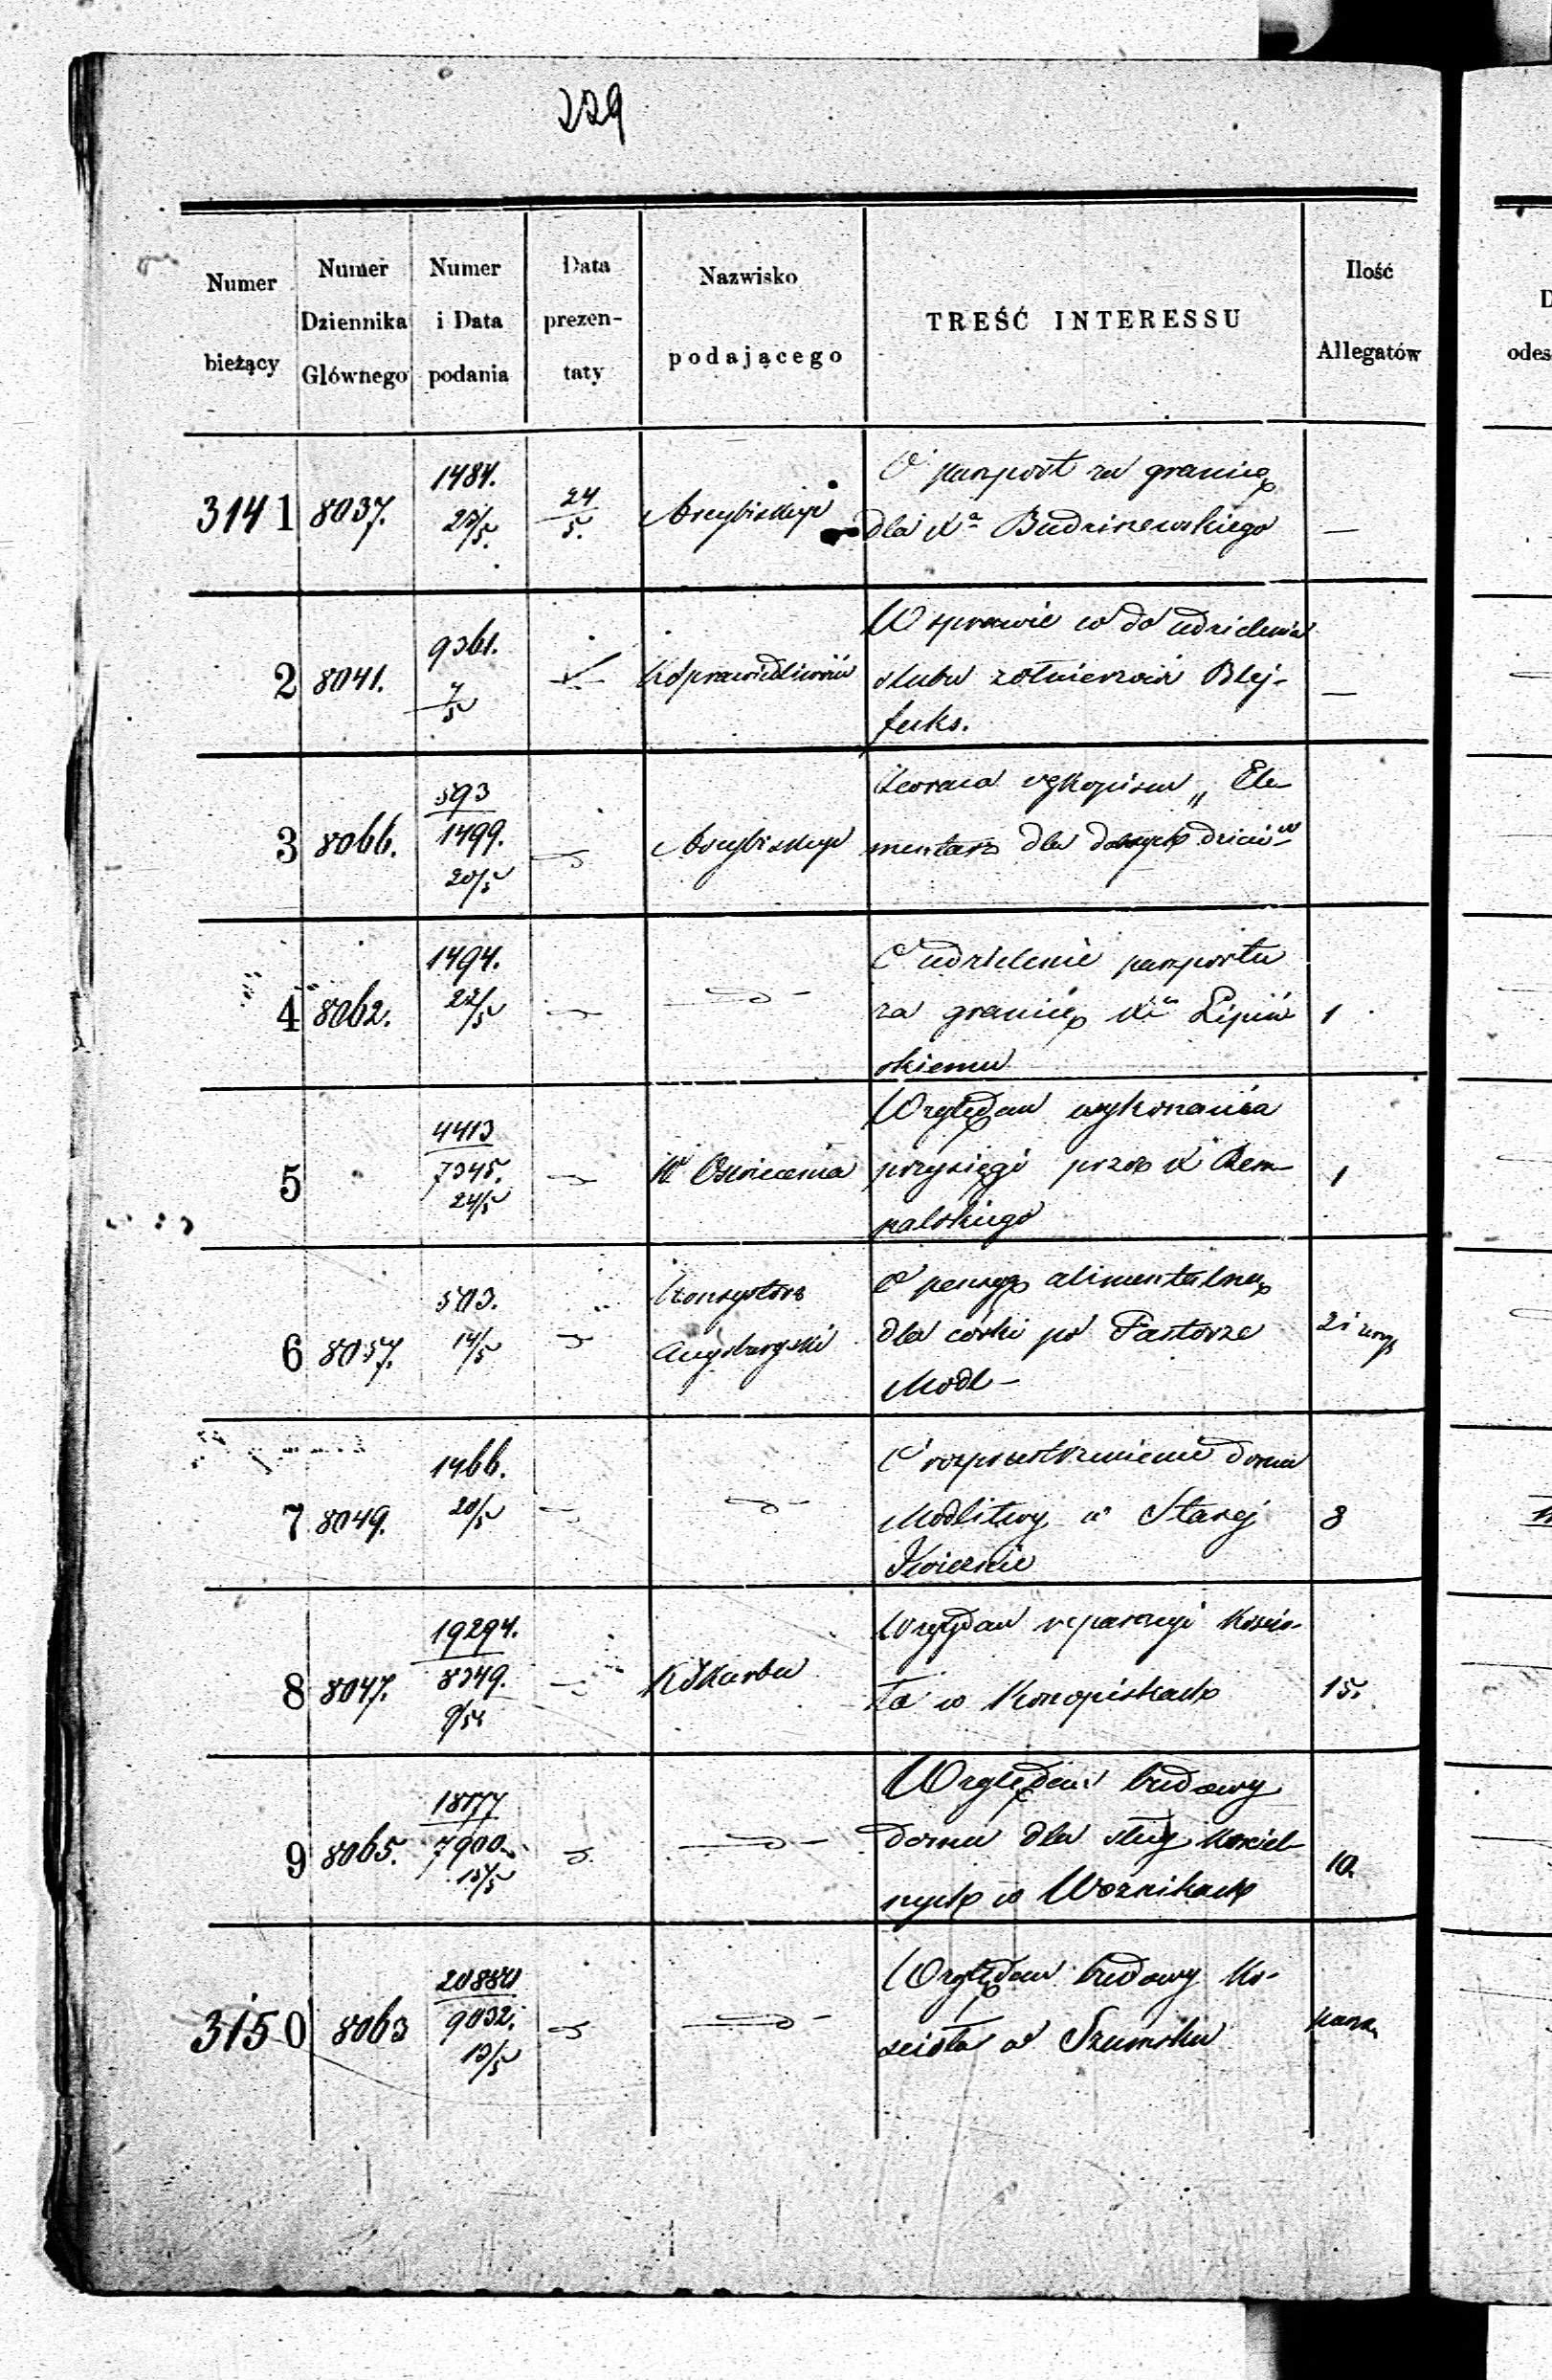 229
Numer bieżący
Numer Dziennika Głównego
Numer i Data podania
Data prezen-taty
Nazwisko podającego
TREŚĆ INTERESSU
Ilość Allegatów
D
odes
3141 8037. 1484. 23/5. 24/5. Arcybiskup
O paszport za granicę
dla Xa Budziszewskiego —
2 8041. 9361. 7/5 KSprawiedliwości
W sprawie w do udzielenia
ślubu żołnierzowi Blej-
fuks. —
3 8066. 593 1499. 20/5 Arcybiskup
Zwraca rękopism „Ele-
mentarz dla dobrych dzieci"
4 8062. 1494. 22/5 —„—
O udzielenie paszportu
za granicę Xu Lipiń
skiemu 1
5 4413 7345. 24/5 W Oświecenia
Względem wykonania
przysięgi przez X
palskiego 1
6 8057. 503. 14/5 Konsystorz
Augsburgski
O pensyę alimentalną
dla córki po Pastorze
Modl- 2 i
7 8049. 1466. 20/5 —„—
O rozprzestrzenienie domu
Modlitwy w Starej
8
8 8047. 19294. 8349. 9/5 KSkarbu
Względem reparacyi kościo-
ła w Konopiskach 15.
9 8065. 7900. 15/5 —„—
Względem budowy
domu dla sług kościel-
nych w Woznikach 10.
3150 8063 9032. 13/5 —„—
Względem budowy ko-
ścioła w Szumsku